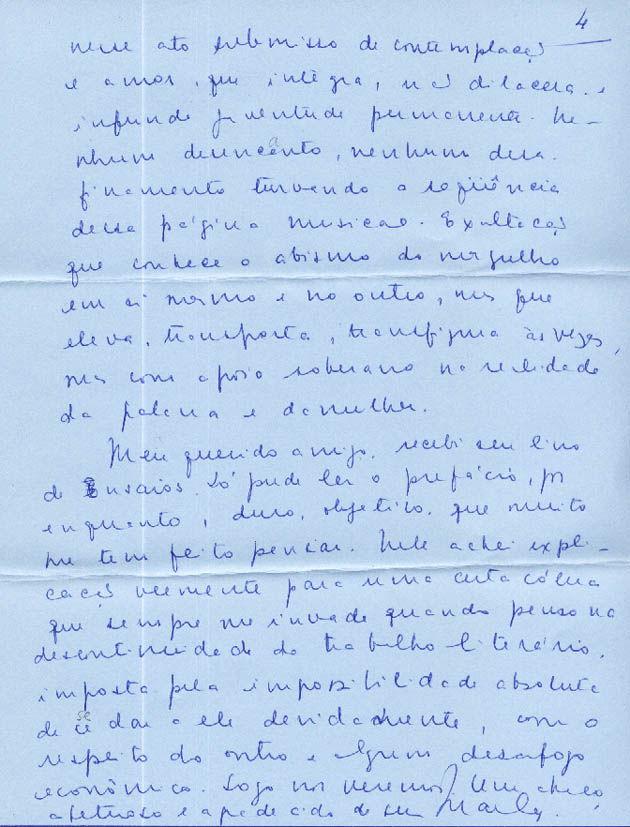 4
nesse ato submisso de contemplação
e amor, que integra, nos dilacera, e
infunde juventude permanente. Ne-
nhum desencanto, nenhum desa-
finamento turvando a seqüência
dessa página musical. Exultação
que conhece o abismo do mergulho
em si mesmo e no outro, mas que
eleva, transporta, transfigura às vezes,
mas com apoio soberano na realidade
da palavra e da mulher.
Meu querido amigo, recebi seu livro
de Ensaios. Só pude ler o prefácio, por
enquanto, duro, objetivo, que muito
me tem feito pensar. Nele achei expli-
cação veemente para uma certa cólera
que sempre me invade quando penso na
descontinuidade do trabalho literário,
imposta pela impossibilidade absoluta
de se dar a ele devidamente, com o
respeito do outro e algum desafogo
econômico. Logo nos veremos. Um abraço
afetuoso e agradecido de seu Marly.